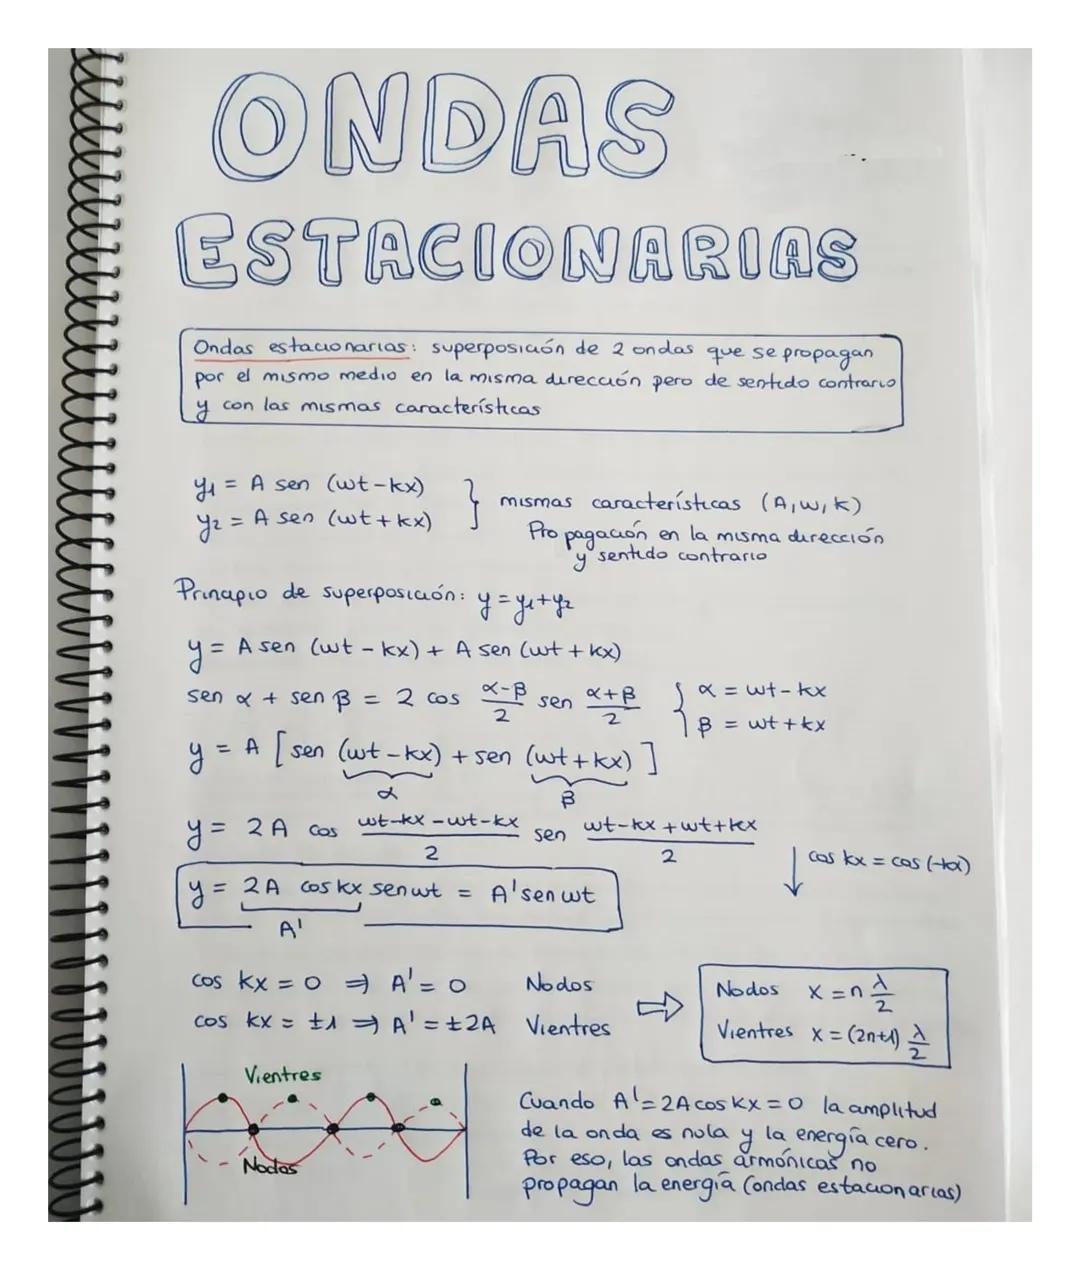 ONDAS
ESTACIONARIAS
Ondas estacionarias: superposición de 2 ondas que se propagan
por el mismo medio en la misma dirección pero de sentido contrario
y con las mismas características
y₁ = A sen (wt-kx)
y₂ = A sen (wt+kx)
} mismas características (A, w, k)
Propagación en la misma dirección
y sentido contrario
Principio de superposición: y = y₁+y₂
y = A sen (wt - kx) + A sen (wt + kx)
sen α + sen β = 2 cos (α-β)/2 sen (α+β)/2 { α = wt - kx
β = wt + kx
y = A [sen (wt - kx) + sen (wt + kx)]
α β
y = 2A cos (wt-kx-wt-kx)/2 sen (wt-kx+wt+kx)/2
↓ cos kx = cos (-kx)
y = 2A cos kx sen wt = A' sen wt
A'
cos kx = 0 ⇒ A' = 0 Nodos
cos kx = ±1 ⇒ A' = ±2A Vientres
⇨
Nodos x = n λ/2
Vientres x = (2n+1) λ/2
Vientres
Nodos
Cuando A' = 2A cos kx = 0 la amplitud
de la onda es nula y la energía cero.
Por eso, las ondas armónicas no
propagan la energía (ondas estacionarias)